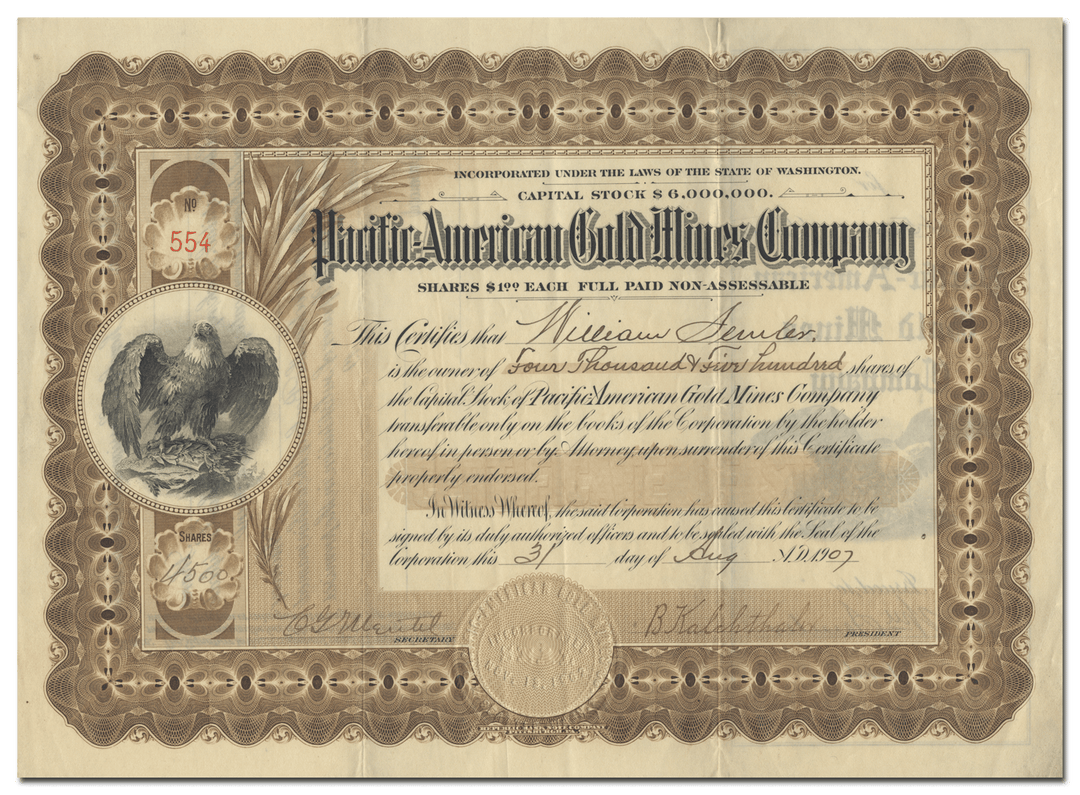 INCORPORATED UNDER THE LAWS OF THE STATE OF WASHINGTON.
CAPITAL STOCK $6,000,000.
Nº
554
Pacific-American Gold Mines Company
SHARES $1.00 EACH FULL PAID NON-ASSESSABLE
This Certifies that William Semler.
is the owner of Four Thousand & Five hundred shares of
the Capital Stock of Pacific American Gold Mines Company
transferable only on the books of the Corporation by the holder
hereof in person or by Attorney, upon surrender of this Certificate
properly endorsed.
In Witness Whereof, the said Corporation has caused this Certificate to be
signed by its duly authorized officers and to be sealed with the Seal of the
Corporation this 31 day of Aug A.D. 1907
SHARES
4500
SECRETARY
B Kalchthaler
PRESIDENT
REPUBLIC BANK NOTE COMPANY
PITTSBURGH, PA.